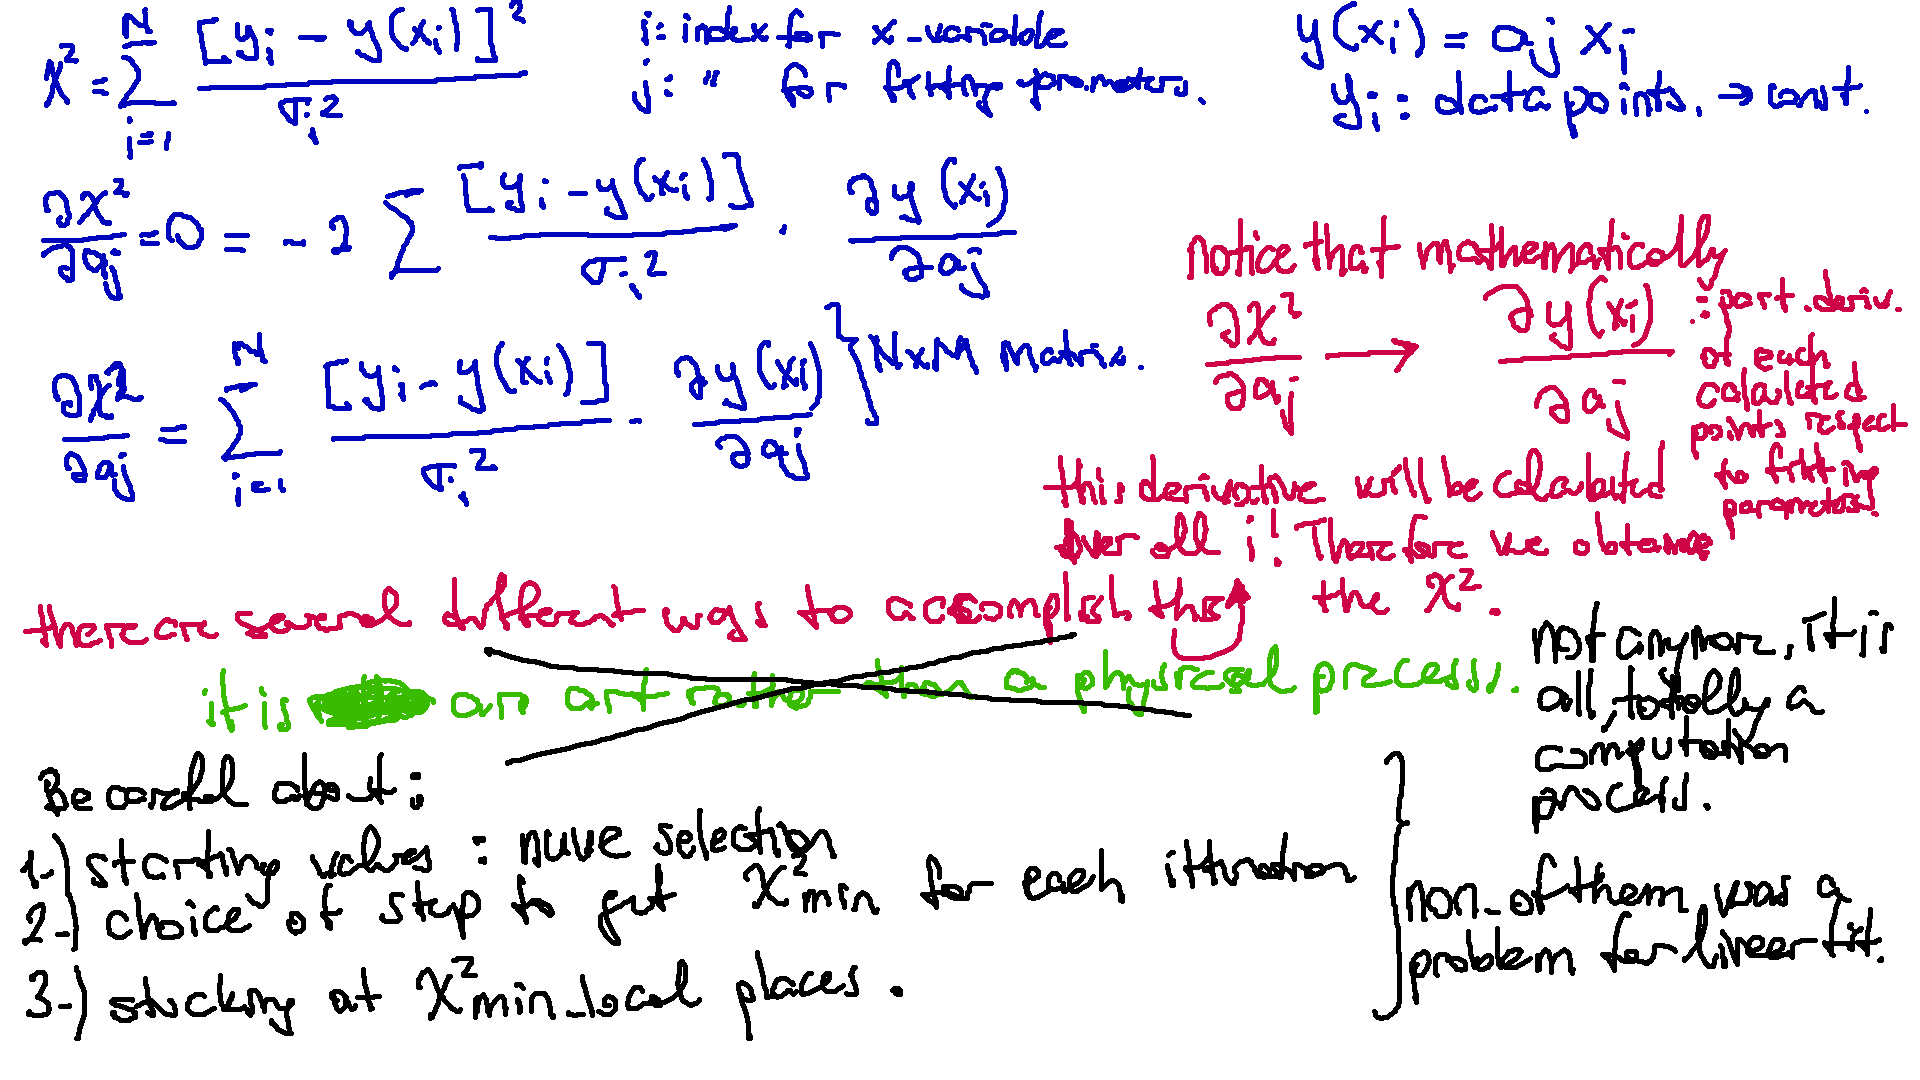 χ² = Σ_{i=1}^{N} [yi - y(xi)]² / σi²
i: index for x-variable
j: " for fitting parameters.
y(xi) = aj xi
yi: data points, → const.
∂χ²/∂aj = 0 = -2 Σ [yi - y(xi)] / σi² · ∂y(xi)/∂aj
notice that mathematically
∂χ²/∂aj → ∂y(xi)/∂aj
: part.deriv.
of each
calculated
points respect
to fitting
parameters!
∂χ²/∂aj = Σ_{i=1}^{N} [yi - y(xi)] / σi² · ∂y(xi)/∂aj } NxM Matrix.
this derivative will be calculated
over all i! Therefore we obtain
the χ².
there are several different ways to accomplish this
it is an art rather than a physical process.
not anymore, it is
all, totally a
computation
process.
Be careful about:
1-) starting values: selection
2-) choice of step to get χ²min for each
3-) stucking at χ²min-local places.
non-of them was a
problem for lineer fit.